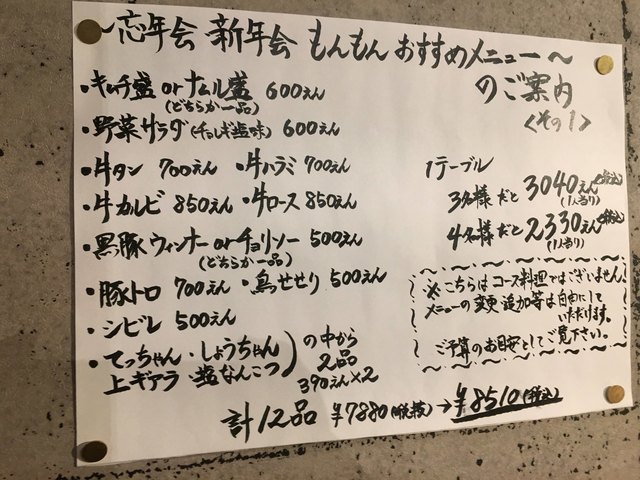 ~忘年会 新年会 もんもん おすすめメニュー~
のご案内
<その1>
・キムチ盛orナムル盛 600えん
(どちらか一品)
・野菜サラダ(チョレギ塩味) 600えん
・牛タン 700えん ・牛ハラミ 700えん
・牛カルビ 850えん ・牛ロース 850えん
・黒豚ウィンナーorチョリソー 500えん
(どちらか一品)
・豚トロ 700えん ・鳥せせり 500えん
・シビレ 500えん
・てっちゃん・しょうちゃん
上ギアラ・歯なんこつ
の中から
2品
390えん×2
計12品 ¥7880(税抜)→¥8510(税込)
1テーブル
3名様だと 3040えん(税込)
(1人当り)
4名様だと 2330えん(税込)
(1人当り)
※こちらはコース料理ではございません。
メニューの変更・追加等は自由にして
いただけます。
ご予算のお目安としてご覧下さい。